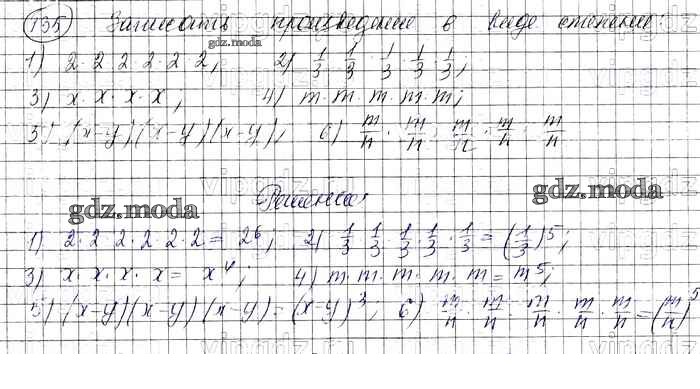 135) Записать произведение в виде степени:
gdz.moda
1) 2·2·2·2·2·2; 2) 1/3·1/3·1/3·1/3·1/3;
3) x·x·x·x; 4) m·m·m·m·m;
5) (x-y)(x-y)(x-y); 6) m/n·m/n·m/n·m/n·m/n
Решение:
gdz.moda gdz.moda
1) 2·2·2·2·2·2=2⁶; 2) 1/3·1/3·1/3·1/3·1/3=(1/3)⁵;
3) x·x·x·x=x⁴; 4) m·m·m·m·m=m⁵;
5) (x-y)(x-y)(x-y)=(x-y)³; 6) m/n·m/n·m/n·m/n·m/n=(m/n)⁵